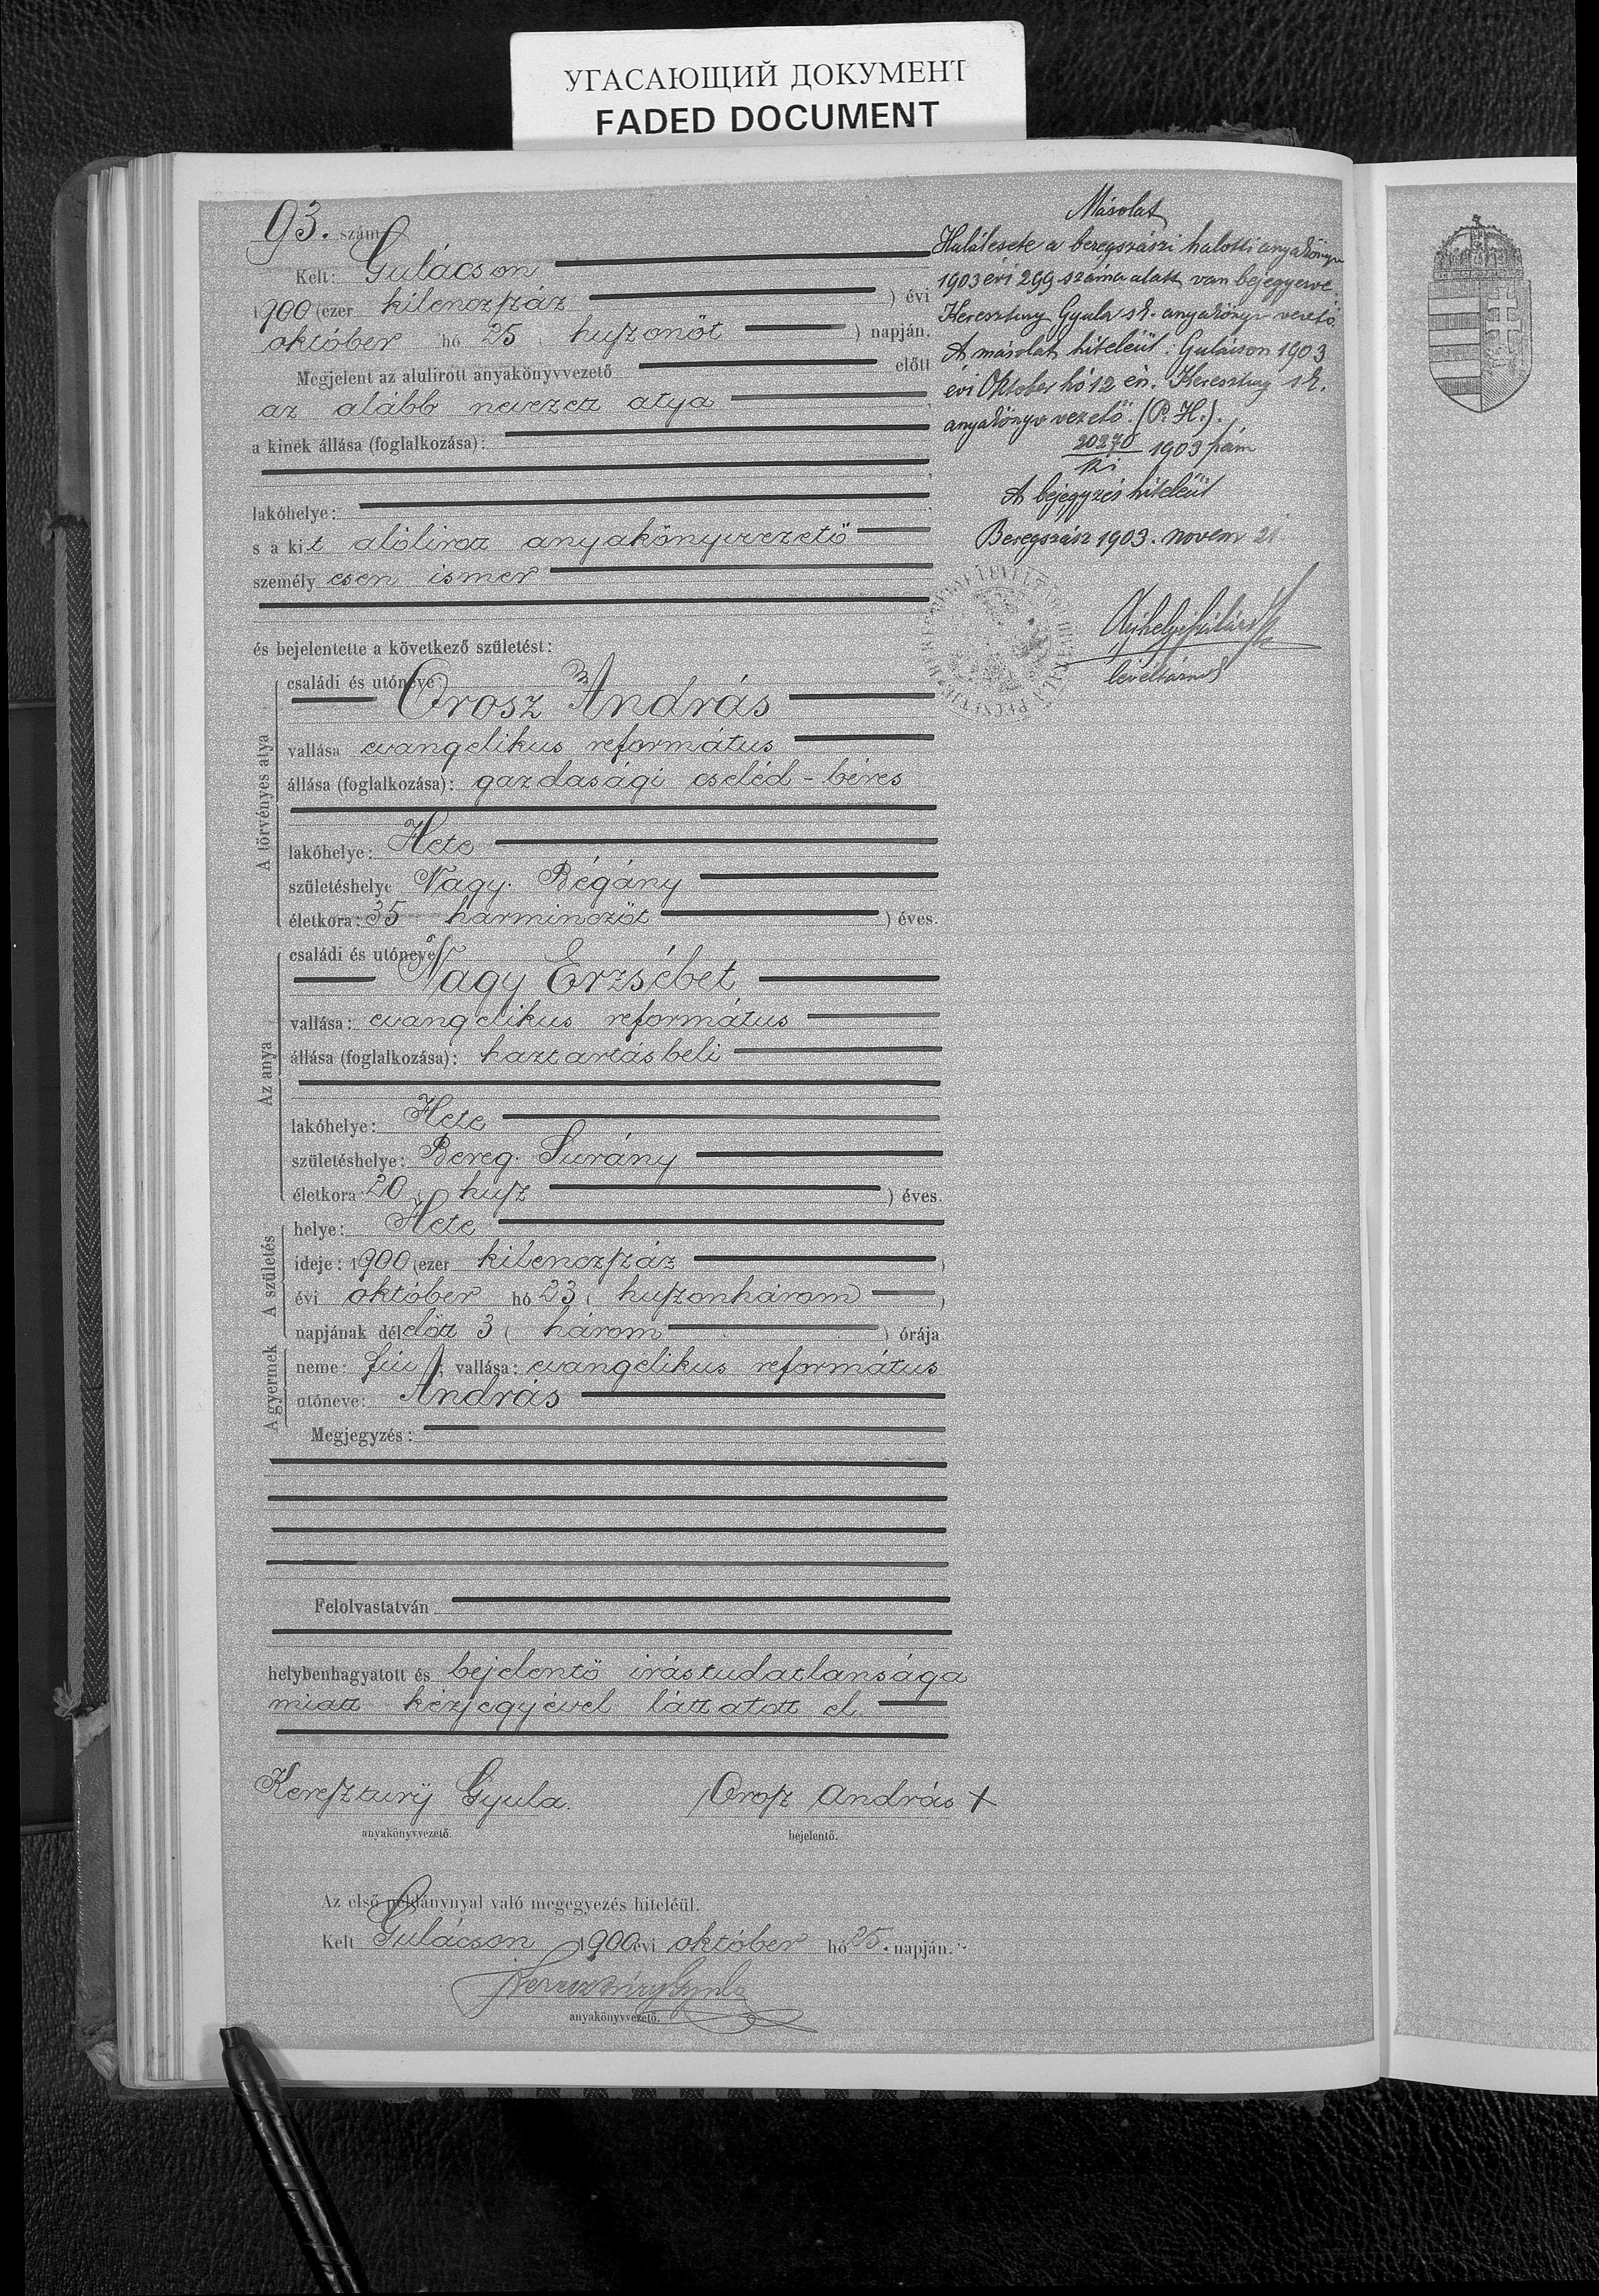 УГАСАЮЩИЙ ДОКУМЕНТ
FADED DOCUMENT
93. szám
Kelt: Gulácson
1900 (ezer kilenczszáz ) évi
október hó 25 ( huszonöt ) napján.
Megjelent az alulírott anyakönyvvezető előtt
az alább nevezett atya
a kinek állása (foglalkozása):
lakóhelye:
s a kit alólirott anyakönyvvezető
személyesen ismer
és bejelentette a következő születést:
A törvényes atya
családi és utóneve:
Orosz András
vallása evangelikus református
állása (foglalkozása): gazdasági cseléd - béres
lakóhelye: Hete
születéshelye Nagy. Bégány
életkora: 35 harminczöt ) éves.
Az anya
családi és utóneve:
Nagy Erzsébet
vallása: evangelikus református
állása (foglalkozása): haztartásbeli
lakóhelye: Hete
születéshelye: Bereg. Surány
életkora 20 ( husz ) éves.
A születés
helye: Hete
ideje: 1900 (ezer kilenczszáz )
évi október hó 23 ( huszonhárom )
napjának délelőtt 3 ( három ) órája
A gyermek
neme: fiu ; vallása: evangelikus református
utóneve: András
Megjegyzés:
Felolvastatván
helybenhagyatott és bejelentő irástudatlansága
miatt kézjegyével láttatott el.
Keresztury Gyula. Orosz András +
anyakönyvvezető. bejelentő.
Az első példánynyal való megegyezés hiteléül.
Kelt Gulácson 1900 évi október hó 25. napján.
Keresztury Gyula
anyakönyvvezető.
Másolat
Halálesete a beregszászi halotti anyakönyv
1903 évi 299 száma alatt van bejegyezve.
Keresztury Gyula sk. anyakönyv vezető.
A másolat hiteleül: Gulácson 1903
évi Oktober hó 12 én. Keresztury sk.
anyakönyv vezető. (P. H.).
20270 1903 szám
A bejegyzés hiteleül
Beregszász 1903. novem 21
levéltárnok